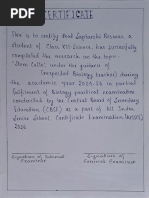 CERTIFICATE
This is to certify that Saptarshi Biswas, a
student of Class XII-Science, has successfully
completed the research on the topic
"Stem Cells", under the guidance of
(respected Biology teacher) during
the academic year 2025-26 in partial
fulfilment of Biology practical examination
conducted by the Central Board of Secondary
Education (CBSE) as a part of All India
Senior School Certificate Examination
2026
Signature of Internal
Examiner
Signature of
External Examiner